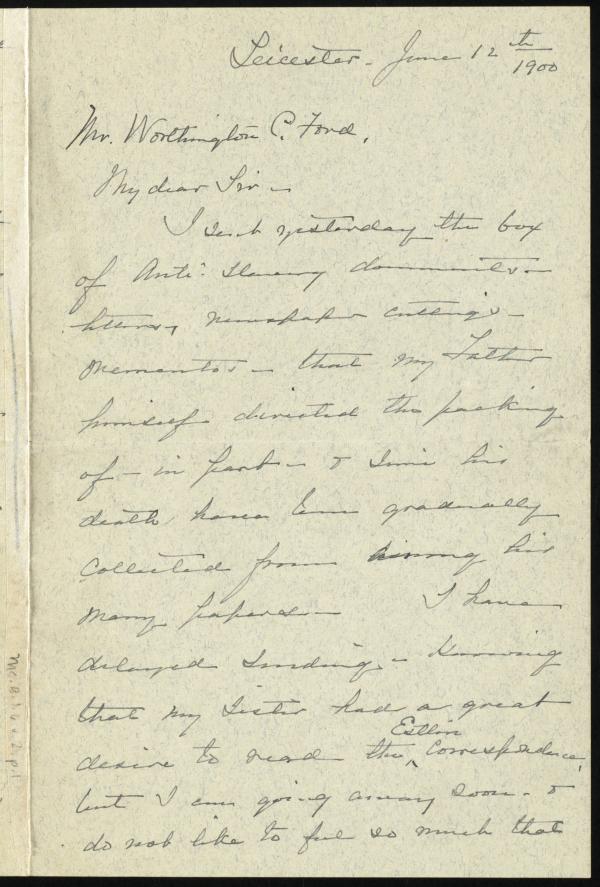 Leicester - June 12th
1900
Mr. Worthington C. Ford.
My dear Sir -
I sent yesterday the box
of Anti-Slavery documents -
letters, newspaper cuttings -
mementos - that my Father
himself directed the packing
of - in part - & since his
death have been gradually
collected from among his
many papers - I have
delayed sending, - knowing
that my Sister had a great
Estlin
desire to read the ^ Correspondence,
but I am going away soon - &
do not like to feel so much that